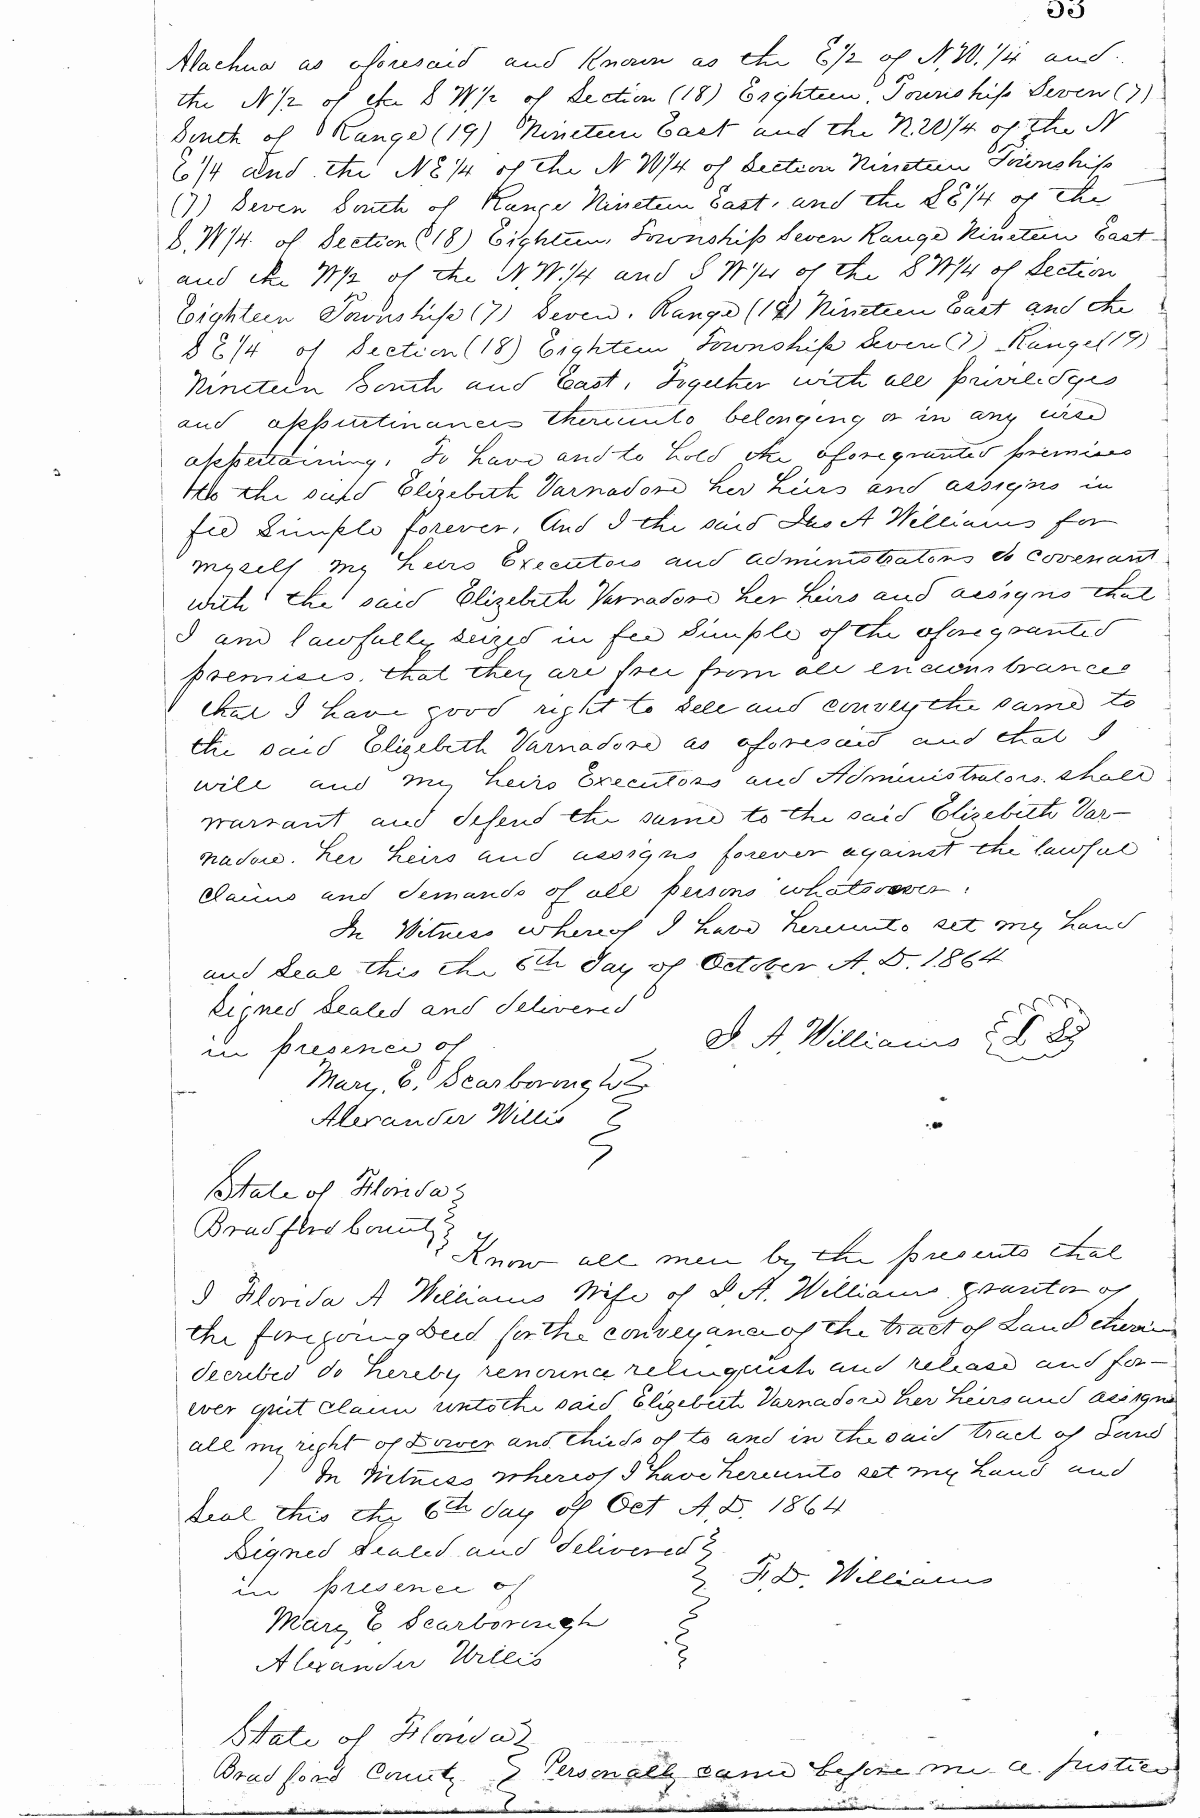 53
Alachua as aforesaid and Known as the E½ of N.W.¼ and
the N½ of the S W½ of Section (18) Eighteen, Township Seven (7)
South of Range (19) Nineteen East and the N.W¼ of the N
E¼ and the NE¼ of the N W¼ of Section Nineteen Township
(7) Seven South of Range Nineteen East, and the SE¼ of the
S.W¼ of Section (18) Eighteen, Township Seven Range Nineteen East
and the W½ of the N.W.¼ and S W¼ of the SW¼ of Section
Eighteen Township (7) Seven, Range (19) Nineteen East and the
S E¼ of Section (18) Eighteen Township Seven (7) Range (19)
Nineteen South and East, Together with all priviledges
and appurtinances thereunto belonging or in any wise
appertaining, To have and to hold the aforegranted premises
to the said Elizebeth Varnadore her heirs and assigns in
fee Simple forever, And I the said Jas A Williams for
myself my heirs Executors and administrators do covenant
with the said Elizebeth Varnadore her heirs and assigns that
I am lawfully seized in fee Simple of the aforegranted
premises, that they are free from all encumbrances
that I have good right to sell and convey the same to
the said Elizebeth Varnadore as aforesaid and that I
will and my heirs Executors and Administrators shall
warrant and defend the same to the said Elizebeth Var-
nadore. her heirs and assigns forever against the lawful
claims and demands of all persons whatsoever.
In Witness whereof I have hereunto set my hand
and Seal this the 6th day of October A.D. 1864
Signed Sealed and delivered
in presence of
J. A. Williams L S
Mary, E. Scarborough
Alexander Willis
State of Florida
Bradford County
Know all men by the presents that
I Florida A Williams Wife of J.A. Williams grantor of
the foregoing Deed for the conveyance of the tract of Land therein
decribed do hereby renounce relinquish and release and for-
ever quit claim unto the said Elizebeth Varnadore her heirs and assigns
all my right of Dower and thirds of to and in the said tract of Land
In Witness whereof I have hereunto set my hand and
Seal this the 6th day of Oct A.D. 1864
Signed Sealed and delivered
in presence of
F.D. Williams
Mary E Scarborough
Alexander Willis
State of Florida
Bradford County Personally came before me a Justice